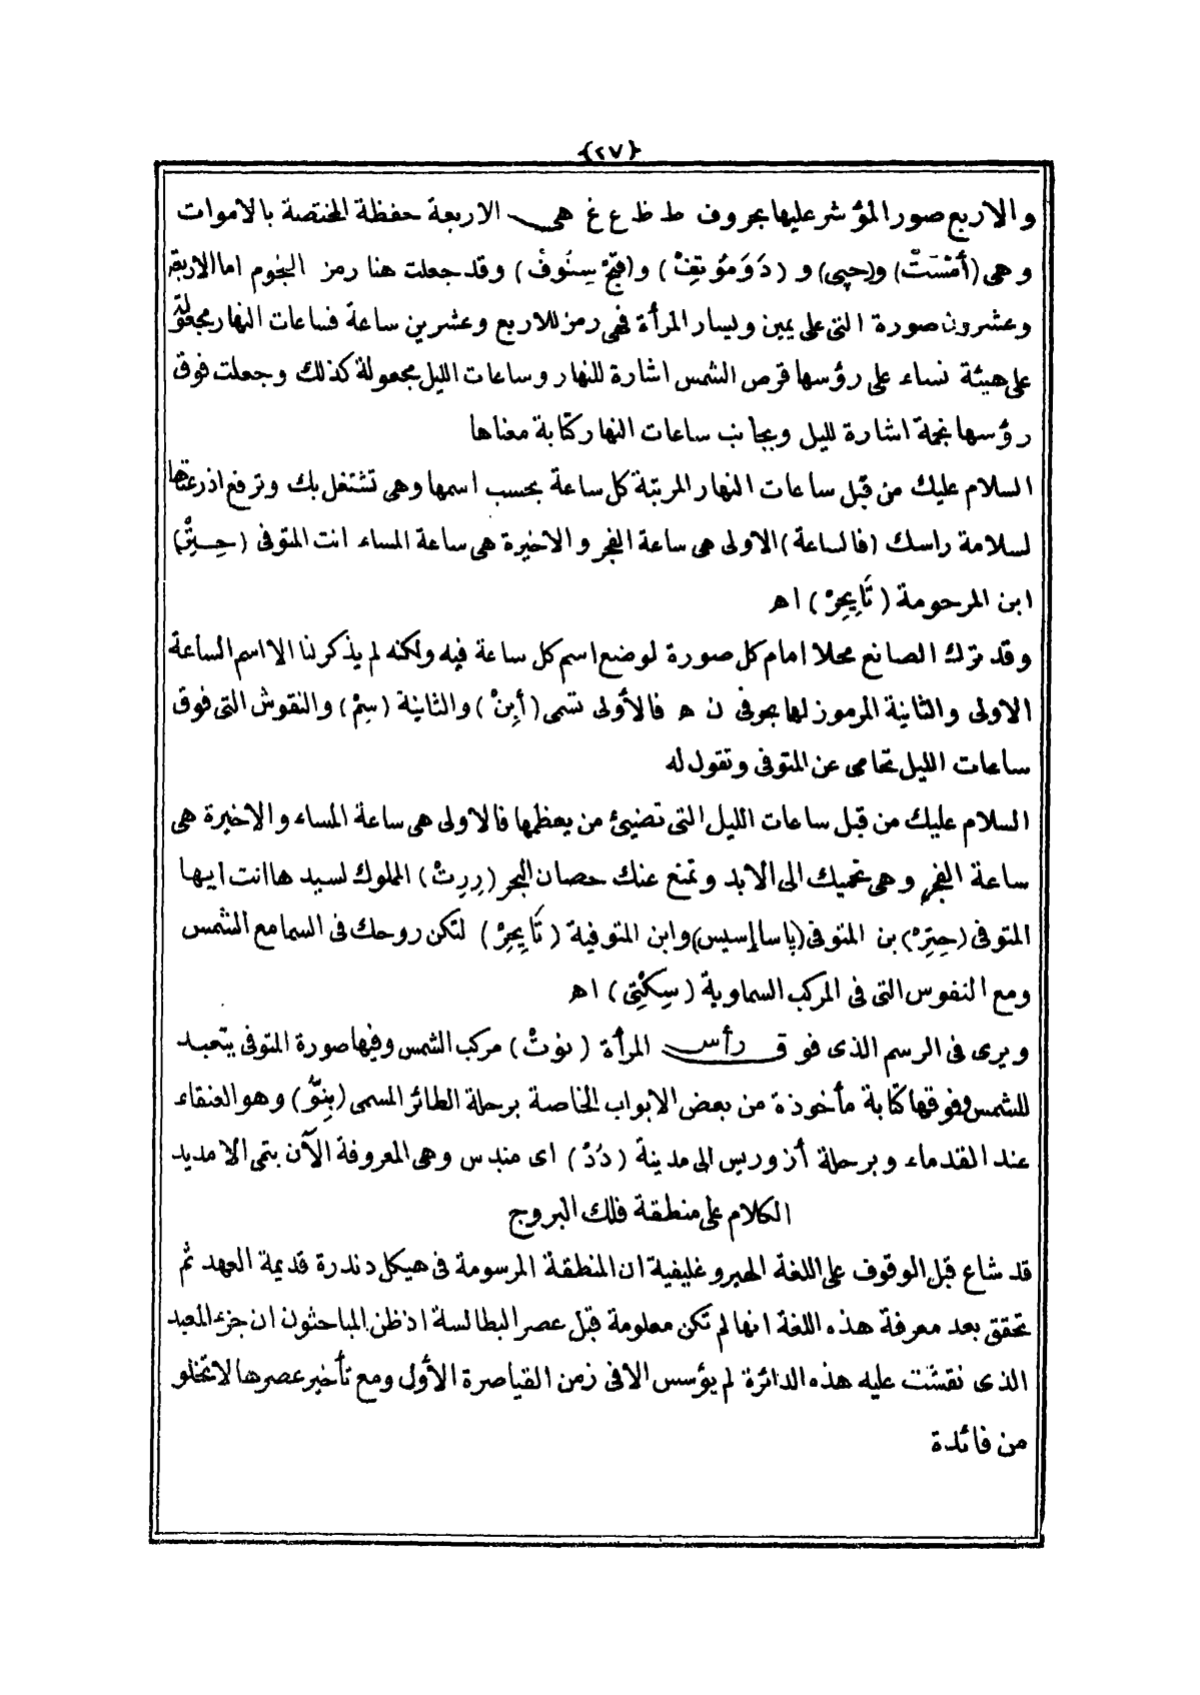 {٢٧}
والاربع صور المؤشر عليها بحروف ط ظ ع غ هى الاربعة حفظة المختصة بالاموات
وهى (أَمْسَتْ) و(حپى) و (دَوَمَوُتِفْ) و(قِبَحْ سِنُوفْ) وقد جعلت هنا رمز النجوم اما الاربعة
وعشرون صورة التى على يمين ويسار المرأة فهى رمز للاربع وعشرين ساعة فساعات النهار مجعولة
على هيئة نساء على رؤسها قرص الشمس اشارة للنهار وساعات الليل مجعولة كذلك وجعلت فوق
رؤسها نجمة اشارة لليل وبجانب ساعات النهار كتابة معناها
السلام عليك من قبل ساعات النهار المرتبة كل ساعة بحسب اسمها وهى تشتغل بك وترفع اذرعتها
لسلامة راسك (فالساعة) الاولى هى ساعة الفجر والاخيرة هى ساعة المساء انت المتوفى (حِتِرْ)
ابن المرحومة (تَايِحِرْ) اه
وقد ترك الصانع محلا امام كل صورة لوضع اسم كل ساعة فيه ولكنه لم يذكر لنا الا اسم الساعة
الاولى والثانية المرموز لها بحرفى ن ه فالأولى تسمى (أبِنْ) والثانية (سِمْ) والنقوش التى فوق
ساعات الليل تحامى عن المتوفى وتقول له
السلام عليك من قبل ساعات الليل التى تضيئ من يعظمها فالاولى هى ساعة المساء والاخيرة هى
ساعة الفجر وهى تحميك الى الابد وتمنع عنك حصان البحر (رِرِتْ) المملوك لسيد ها انت ايها
المتوفى (حِتِرْ) بن المتوفى (پاسا إسيس) وابن المتوفية (تَايِحِرْ) لتكن روحك فى السما مع الشمس
ومع النفوس التى فى المركب السماوية (سِكْتِى) اه
ويرى فى الرسم الذى فوق رأس المرأة (نوُتْ) مركب الشمس وفيها صورة المتوفى يتعبد
للشمس وفوقها كتابة مأخوذة من بعض الابواب الخاصة برحلة الطائر المسمى (بِنوُّ) وهو العنقاء
عند القدماء وبرحلة أزوريس الى مدينة (دُدْ) اى مندس وهى المعروفة الآن بتمى الامديد
الكلام على منطقة فلك البروج
قد شاع قبل الوقوف على اللغة الهيروغليفية ان المنطقة المرسومة فى هيكل دندرة قديمة العهد ثم
تحقق بعد معرفة هذه اللغة انها لم تكن معلومة قبل عصر البطالسة اذ ظن المباحثون ان جزء المعبد
الذى نقشت عليه هذه الدائرة لم يؤسس الا فى زمن القياصرة الأول ومع تأخير عصرها لا تخلو
من فائدة